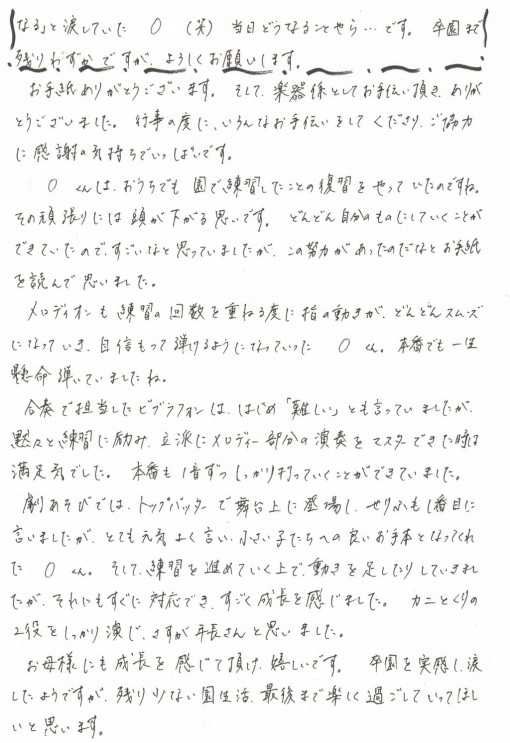 なる」と涙していた 〇 (笑) 当日どうなることやら…です。 卒園まで
残りわずかですが、よろしくお願いします。
お手紙ありがとうございます。 そして、楽器係としてお手伝い頂き、ありが
とうございました。 行事の度に、いろんなお手伝いをしてくださり、ご協力
に感謝の気持ちでいっぱいです。
〇 くんは、おうちでも 園で練習したことの復習をやっていたのですね。
その頑張りには頭が下がる思いです。 どんどん自分のものにしていくことが
できていたので、すごいなと思っていましたが、この努力があったのだなとお手紙
を読んで思いました。
メロディオンも練習の回数を重ねる度に指の動きが、どんどんスムーズ
になっていき、自信もって弾けるようになっていった 〇 くん。本番でも一生
懸命弾いていましたね。
合奏で担当したビブラフォンは、はじめ「難しい」とも言っていましたが、
黙々と練習に励み、立派にメロディー部分の演奏をマスターできた時は
満足気でした。 本番も1音ずつしっかり打っていくことができていました。
劇あそびでは、トップバッターで舞台上に登場し、せりふも1番目に
言いましたが、とても元気よく言い、小さい子たちへの良いお手本となってくれ
た 〇 くん。 そして、練習を進めていく上で、動きを足したりしていきまし
たが、それにもすぐに対応でき、すごく成長を感じました。 カニとくりの
2役をしっかり演じ、さすが年長さんと思いました。
お母様にも成長を感じて頂け、嬉しいです。 卒園を実感し、涙
したようですが、残り少ない園生活、最後まで楽しく過ごしていってほし
いと思います。